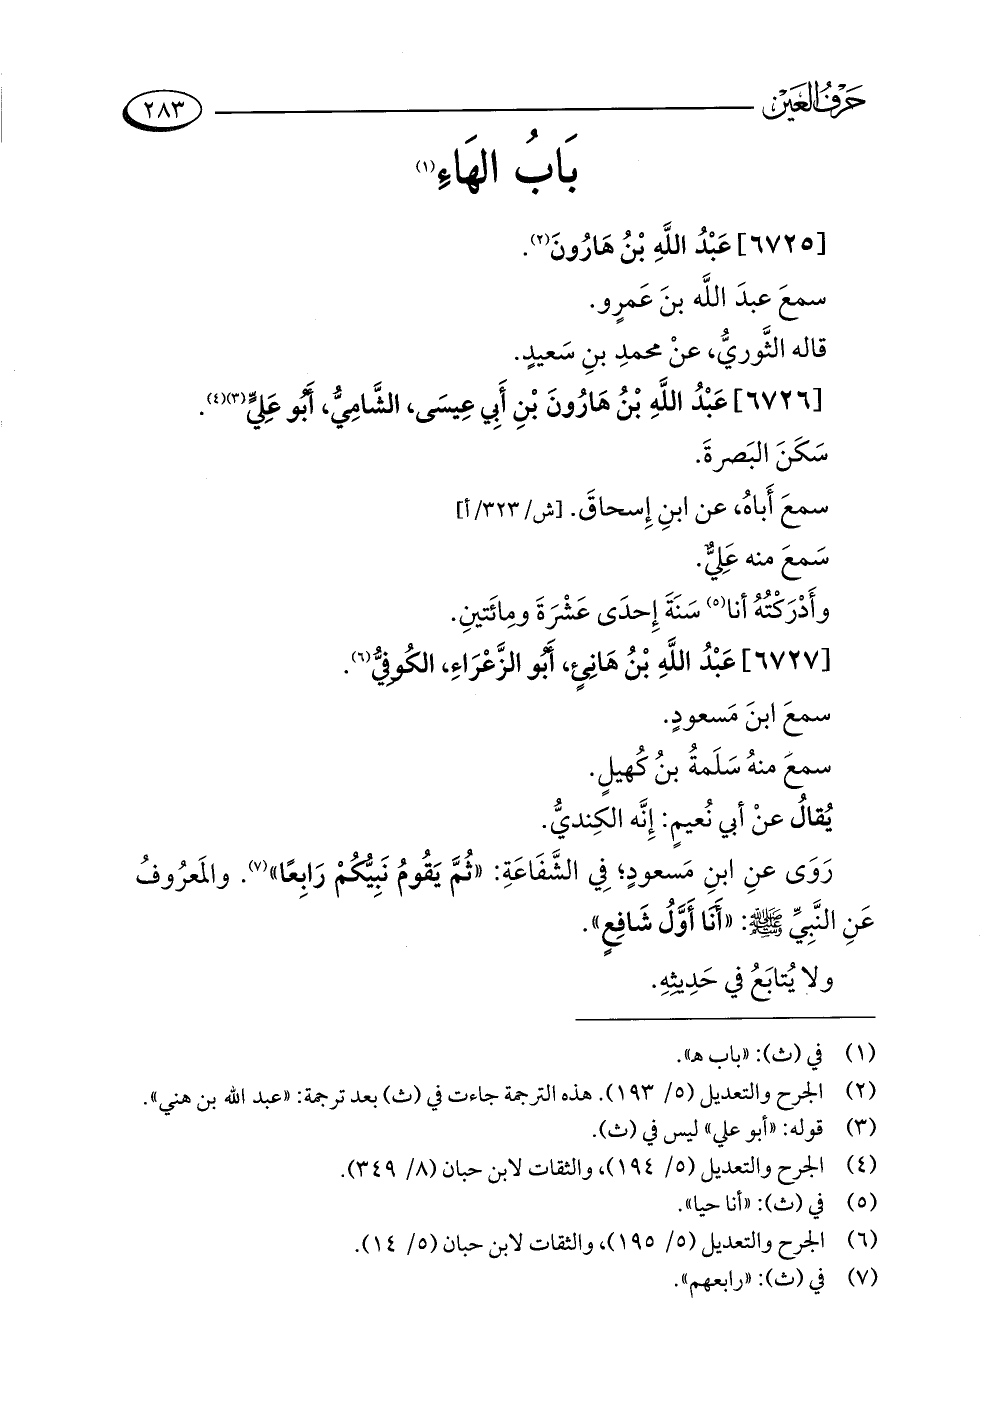 حَرْفُ العَيْن
٢٨٣
بَابُ الهَاءِ(١)
[٦٧٢٥] عَبْدُ اللَّهِ بْنُ هَارُونَ(٢).
سمعَ عبدَ اللَّه بنَ عَمرٍو.
قاله الثَّوريُّ، عنْ محمدِ بنِ سَعيدٍ.
[٦٧٢٦] عَبْدُ اللَّهِ بْنُ هَارُونَ بْنِ أَبِي عِيسَى، الشَّامِيُّ، أَبُو عَلِيٍّ(٣)(٤).
سَكَنَ البَصرةَ.
سمعَ أَباهُ، عن ابنِ إِسحاقَ. [ش/ ٣٢٣/ أ]
سَمعَ منه عَلِيٌّ.
وأَدْرَكْتُهُ أنا(٥) سَنَةَ إِحدَى عَشْرَةَ ومِائَتينِ.
[٦٧٢٧] عَبْدُ اللَّهِ بْنُ هَانِئٍ، أَبُو الزَّعْرَاءِ، الكُوفِيُّ(٦).
سمعَ ابنَ مَسعودٍ.
سمعَ منهُ سَلَمةُ بنُ كُهيلٍ.
يُقالُ عنْ أبي نُعيمٍ: إِنَّه الكِنديُّ.
رَوَى عنِ ابنِ مَسعودٍ؛ فِي الشَّفَاعَةِ: «ثُمَّ يَقُومُ نَبِيُّكُمْ رَابِعًا»(٧). والمَعرُوفُ
عَنِ النَّبِيِّ ﷺ: «أَنَا أَوَّلُ شَافِعٍ».
ولا يُتابَعُ في حَدِيثِهِ.
(١) في (ث): «باب هـ».
(٢) الجرح والتعديل (٥/ ١٩٣). هذه الترجمة جاءت في (ث) بعد ترجمة: «عبد الله بن هني».
(٣) قوله: «أبو علي» ليس في (ث).
(٤) الجرح والتعديل (٥/ ١٩٤)، والثقات لابن حبان (٨/ ٣٤٩).
(٥) في (ث): «أنا حيا».
(٦) الجرح والتعديل (٥/ ١٩٥)، والثقات لابن حبان (٥/ ١٤).
(٧) في (ث): «رابعهم».